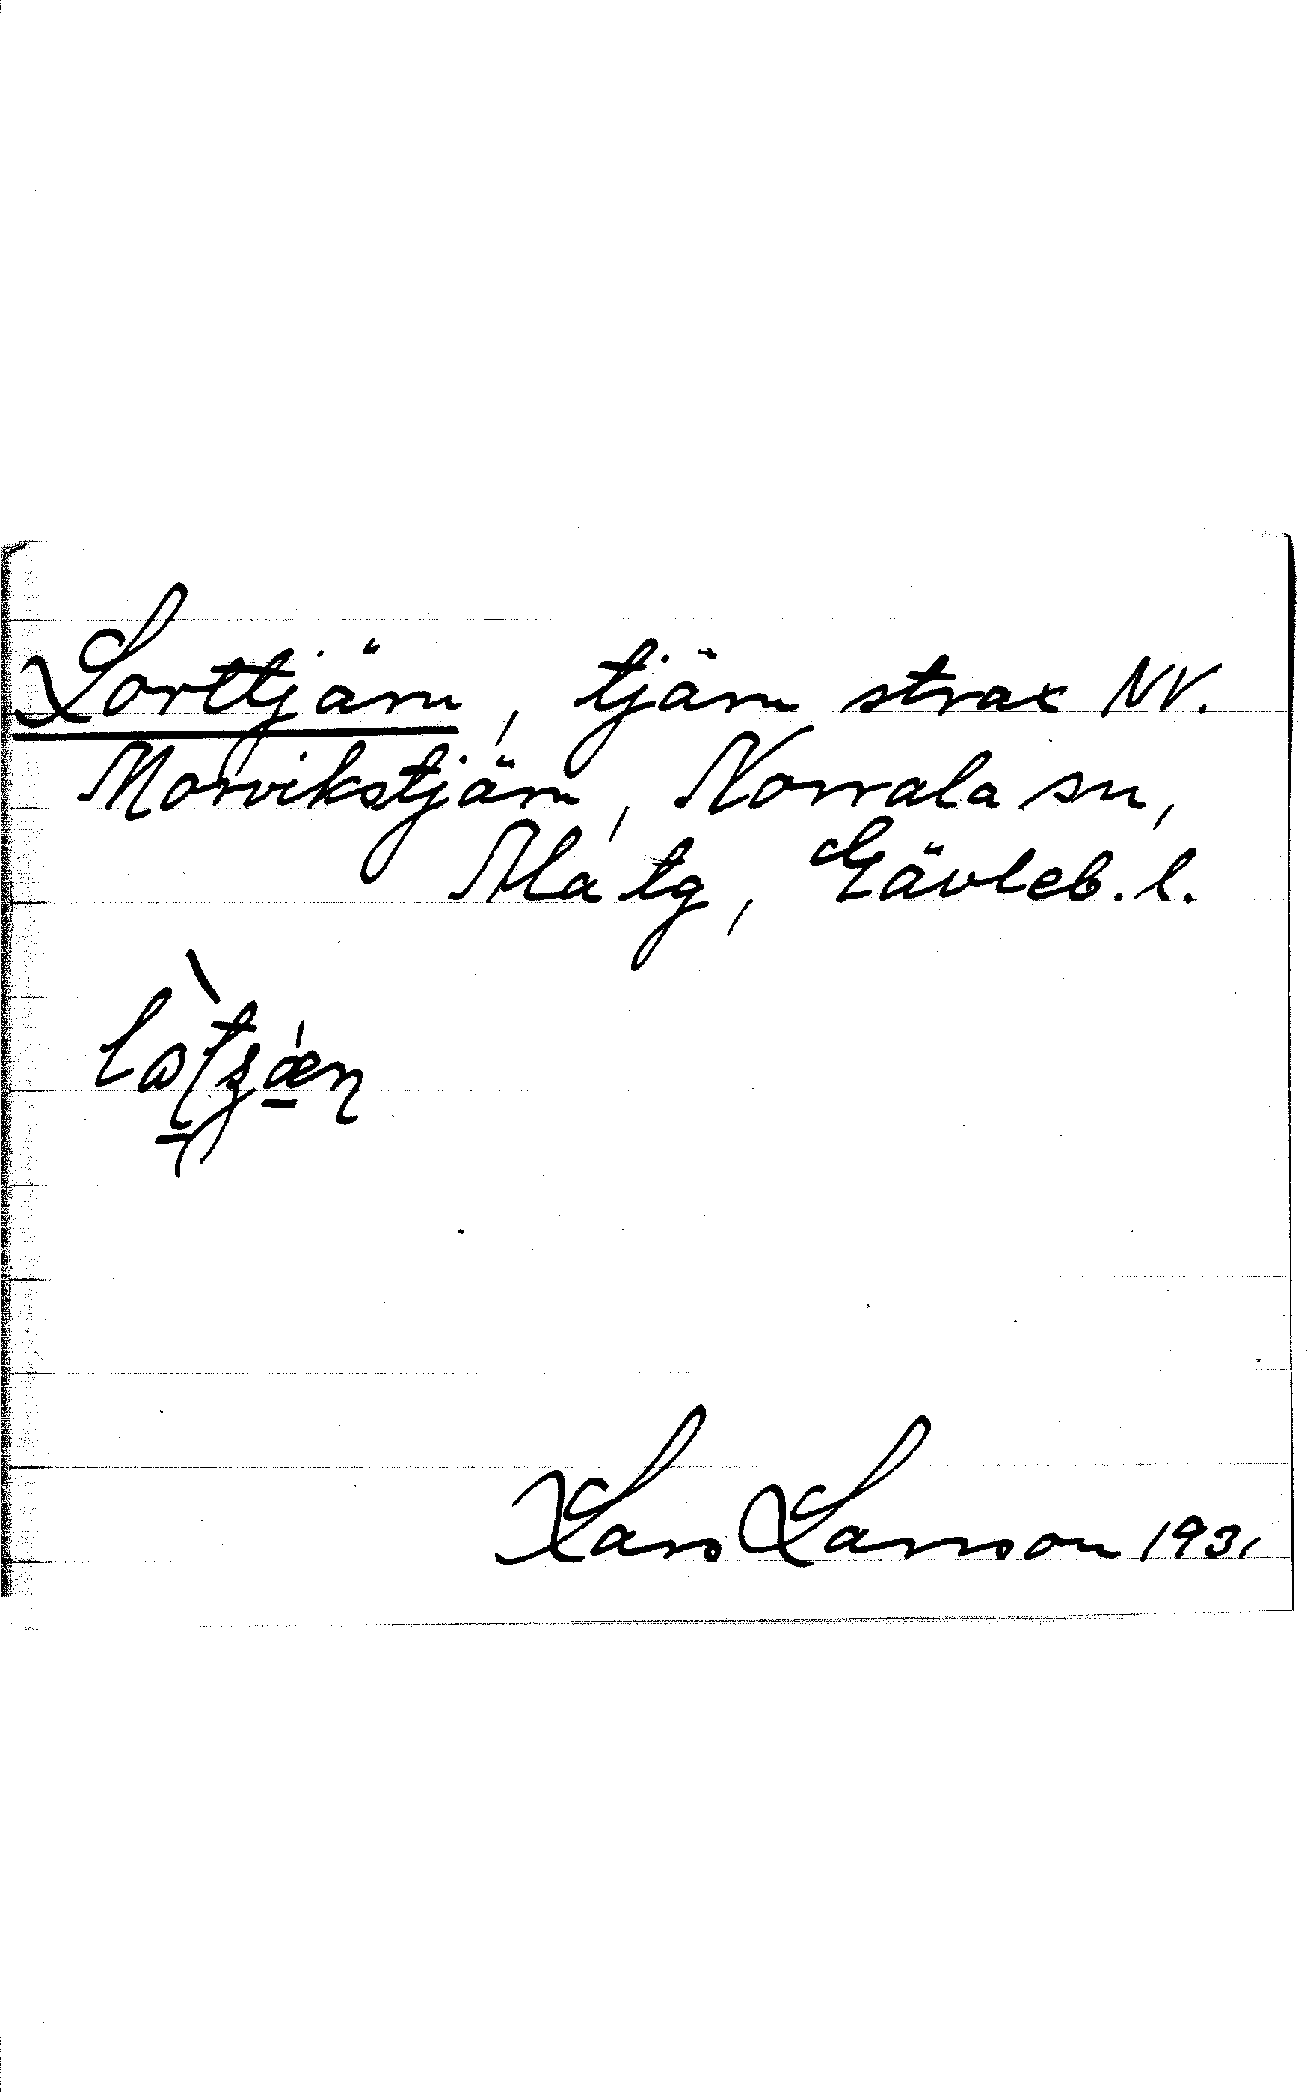 Lorttjärn, tjärn strax NV.
Morvikstjärn, Norrala sn,
Ala tg, Gävleb. l.
Lars Larsson 1931